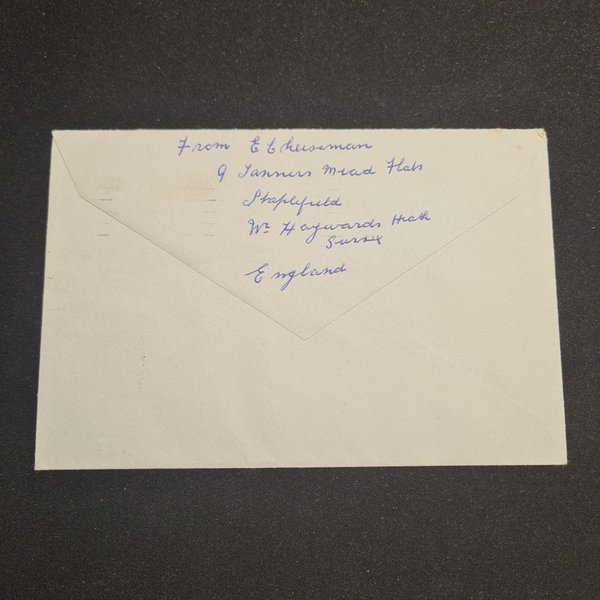 From E Cheiseman
9 Tanners Mead Flats
Staplefield
Nr Haywards Heath
Sussex
England